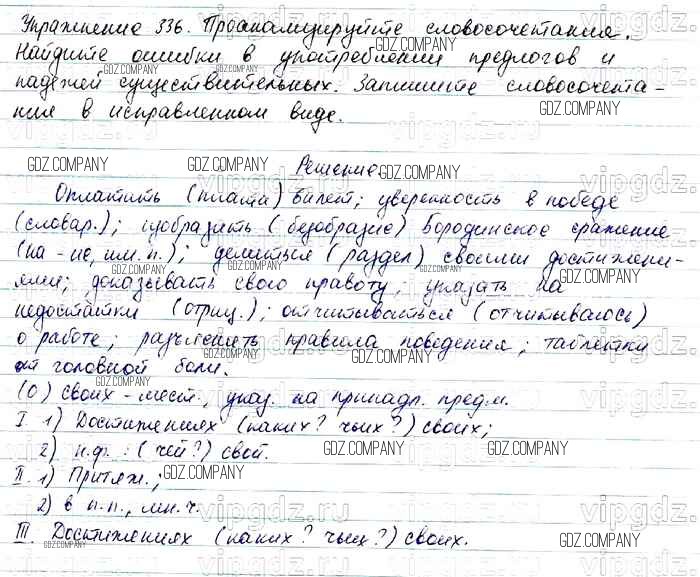 Упражнение 336. Проанализируйте словосочетания.
Найдите ошибки в употреблении предлогов и
падежей существительных. Запишите словосочета-
ния в исправленном виде.
Решение
Оплатить (плата) билет; уверенность в победе
(словар.); изобразить (безобразие) Бородинское сражение
(на -ие, им. п.); делиться (раздел) своими достижени-
ями; доказывать свою правоту; указать на
недостатки (отриц.); отчитываться (отчитываюсь)
о работе; разъяснять правила поведения; таблетки
от головной боли.
(О) своих - мест., указ. на принадл. предм.
I. 1) Достижениях (каких? чьих?) своих;
2) н.ф.: (чей?) свой.
II. 1) Притяж.;
2) в п.п., мн.ч.
III. Достижениях (каких? чьих?) своих.
GDZ.COMPANY
vipgdz.ru